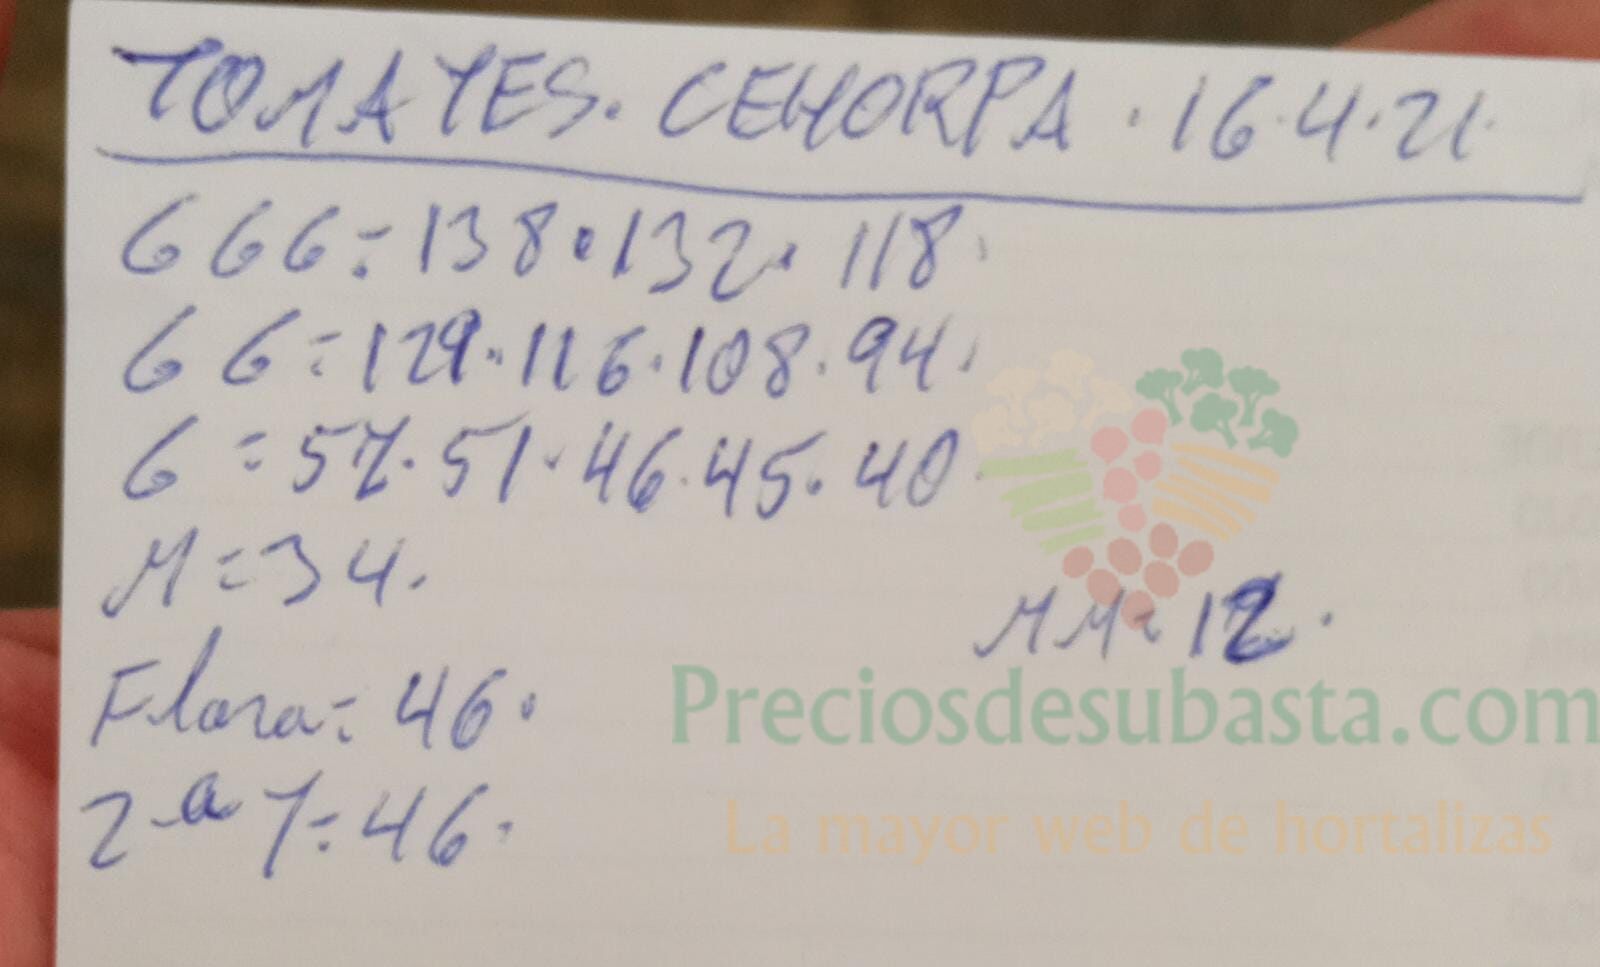 TOMATES. CEHORPA. 16.4.21.
GGG = 138. 132. 118.
GG = 129. 116. 108. 94.
G = 57. 51. 46. 45. 40.
M = 34.
MM = 12.
Flora = 46.
2ª 7 = 46.
Preciosdesubasta.com
La mayor web de hortalizas